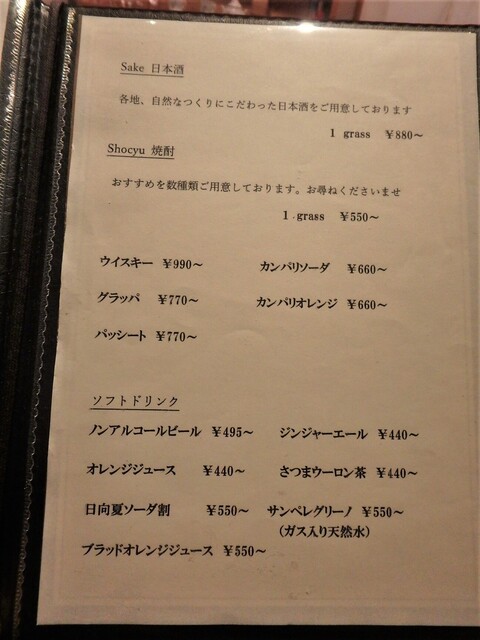 Sake 日本酒
各地、自然なつくりにこだわった日本酒をご用意しております
1 grass ¥880～
Shocyu 焼酎
おすすめを数種類ご用意しております。お尋ねくださいませ
1 grass ¥550～
ウイスキー ¥990～ カンパリソーダ ¥660～
グラッパ ¥770～ カンパリオレンジ ¥660～
パッシート ¥770～
ソフトドリンク
ノンアルコールビール ¥495～ ジンジャーエール ¥440～
オレンジジュース ¥440～ さつまウーロン茶 ¥440～
日向夏ソーダ割 ¥550～ サンペレグリーノ ¥550～
(ガス入り天然水)
ブラッドオレンジジュース ¥550～